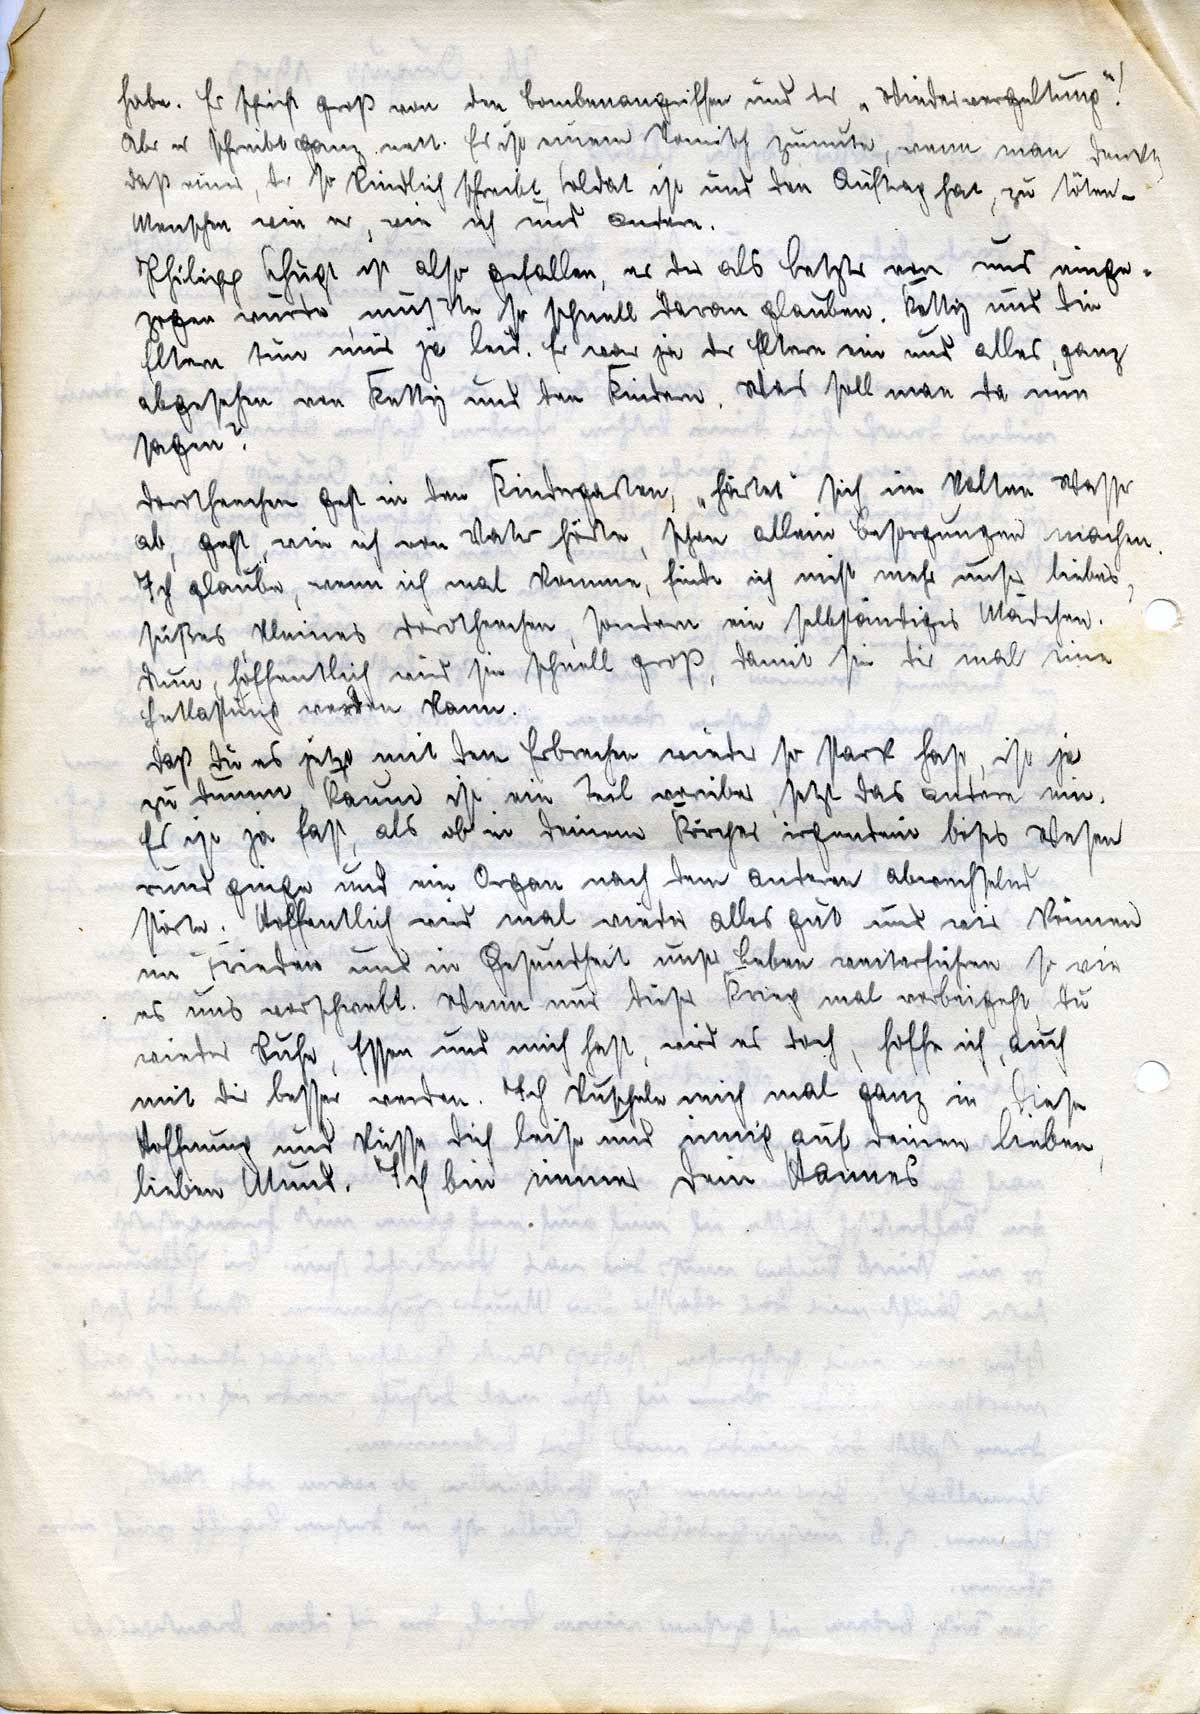 habe. Er spricht groß von den Bombenangriffen und der „Wiedervergeltung“!
Aber er schreibt ganz nett. Es ist einem komisch zumute, wenn man denkt,
daß einer, der so kindlich schreibt, Soldat ist und den Auftrag hat, zu töten –
Menschen wie er, wie ich und andere.
Philipp ist also gefallen, er der als letzter von uns einge-
zogen wurde, mußte so schnell daran glauben. Ketty und die
Eltern tun mir ja leid. Er war ja der Eltern ein und alles, ganz
abgesehen von Ketty und den Kindern. Was soll man da nun
sagen?
Dorotheechen geht in den Kindergarten, „härtet“ sich im kalten Wasser
ab, geht, wie ich von Vater hörte, schon allein Besorgungen machen.
Ich glaube, wenn ich mal komme, finde ich nicht mehr unser liebes,
süßes, kleines Dorotheechen, sondern ein selbständiges Mädchen.
Nun, hoffentlich wird sie schnell groß, damit sie dir mal eine
Entlastung werden kann.
Daß Du es jetzt mit dem Erbrechen wieder so stark hast, ist ja
zu dumm. Kaum ist ein Teil vorüber, setzt das andere ein.
Es ist ja fast, als ob in deinem Körper irgendein böses Wesen
rund ginge und ein Organ nach dem anderen abwechselnd
störte. Hoffentlich wird mal wieder alles gut und wir können
in Frieden und in Gesundheit unser Leben weiterführen so wie
es uns vorschwebt. Wenn nur dieser Krieg mal vorbeigeht, du
wieder Ruhe, Essen und mich hast, wird es doch, hoffe ich, auch
mit dir besser werden. Ich kuschele mich mal ganz in diese
Hoffnung und küsse dich leise und innig auf deinen lieben,
lieben Mund. Ich bin immer dein Hannes